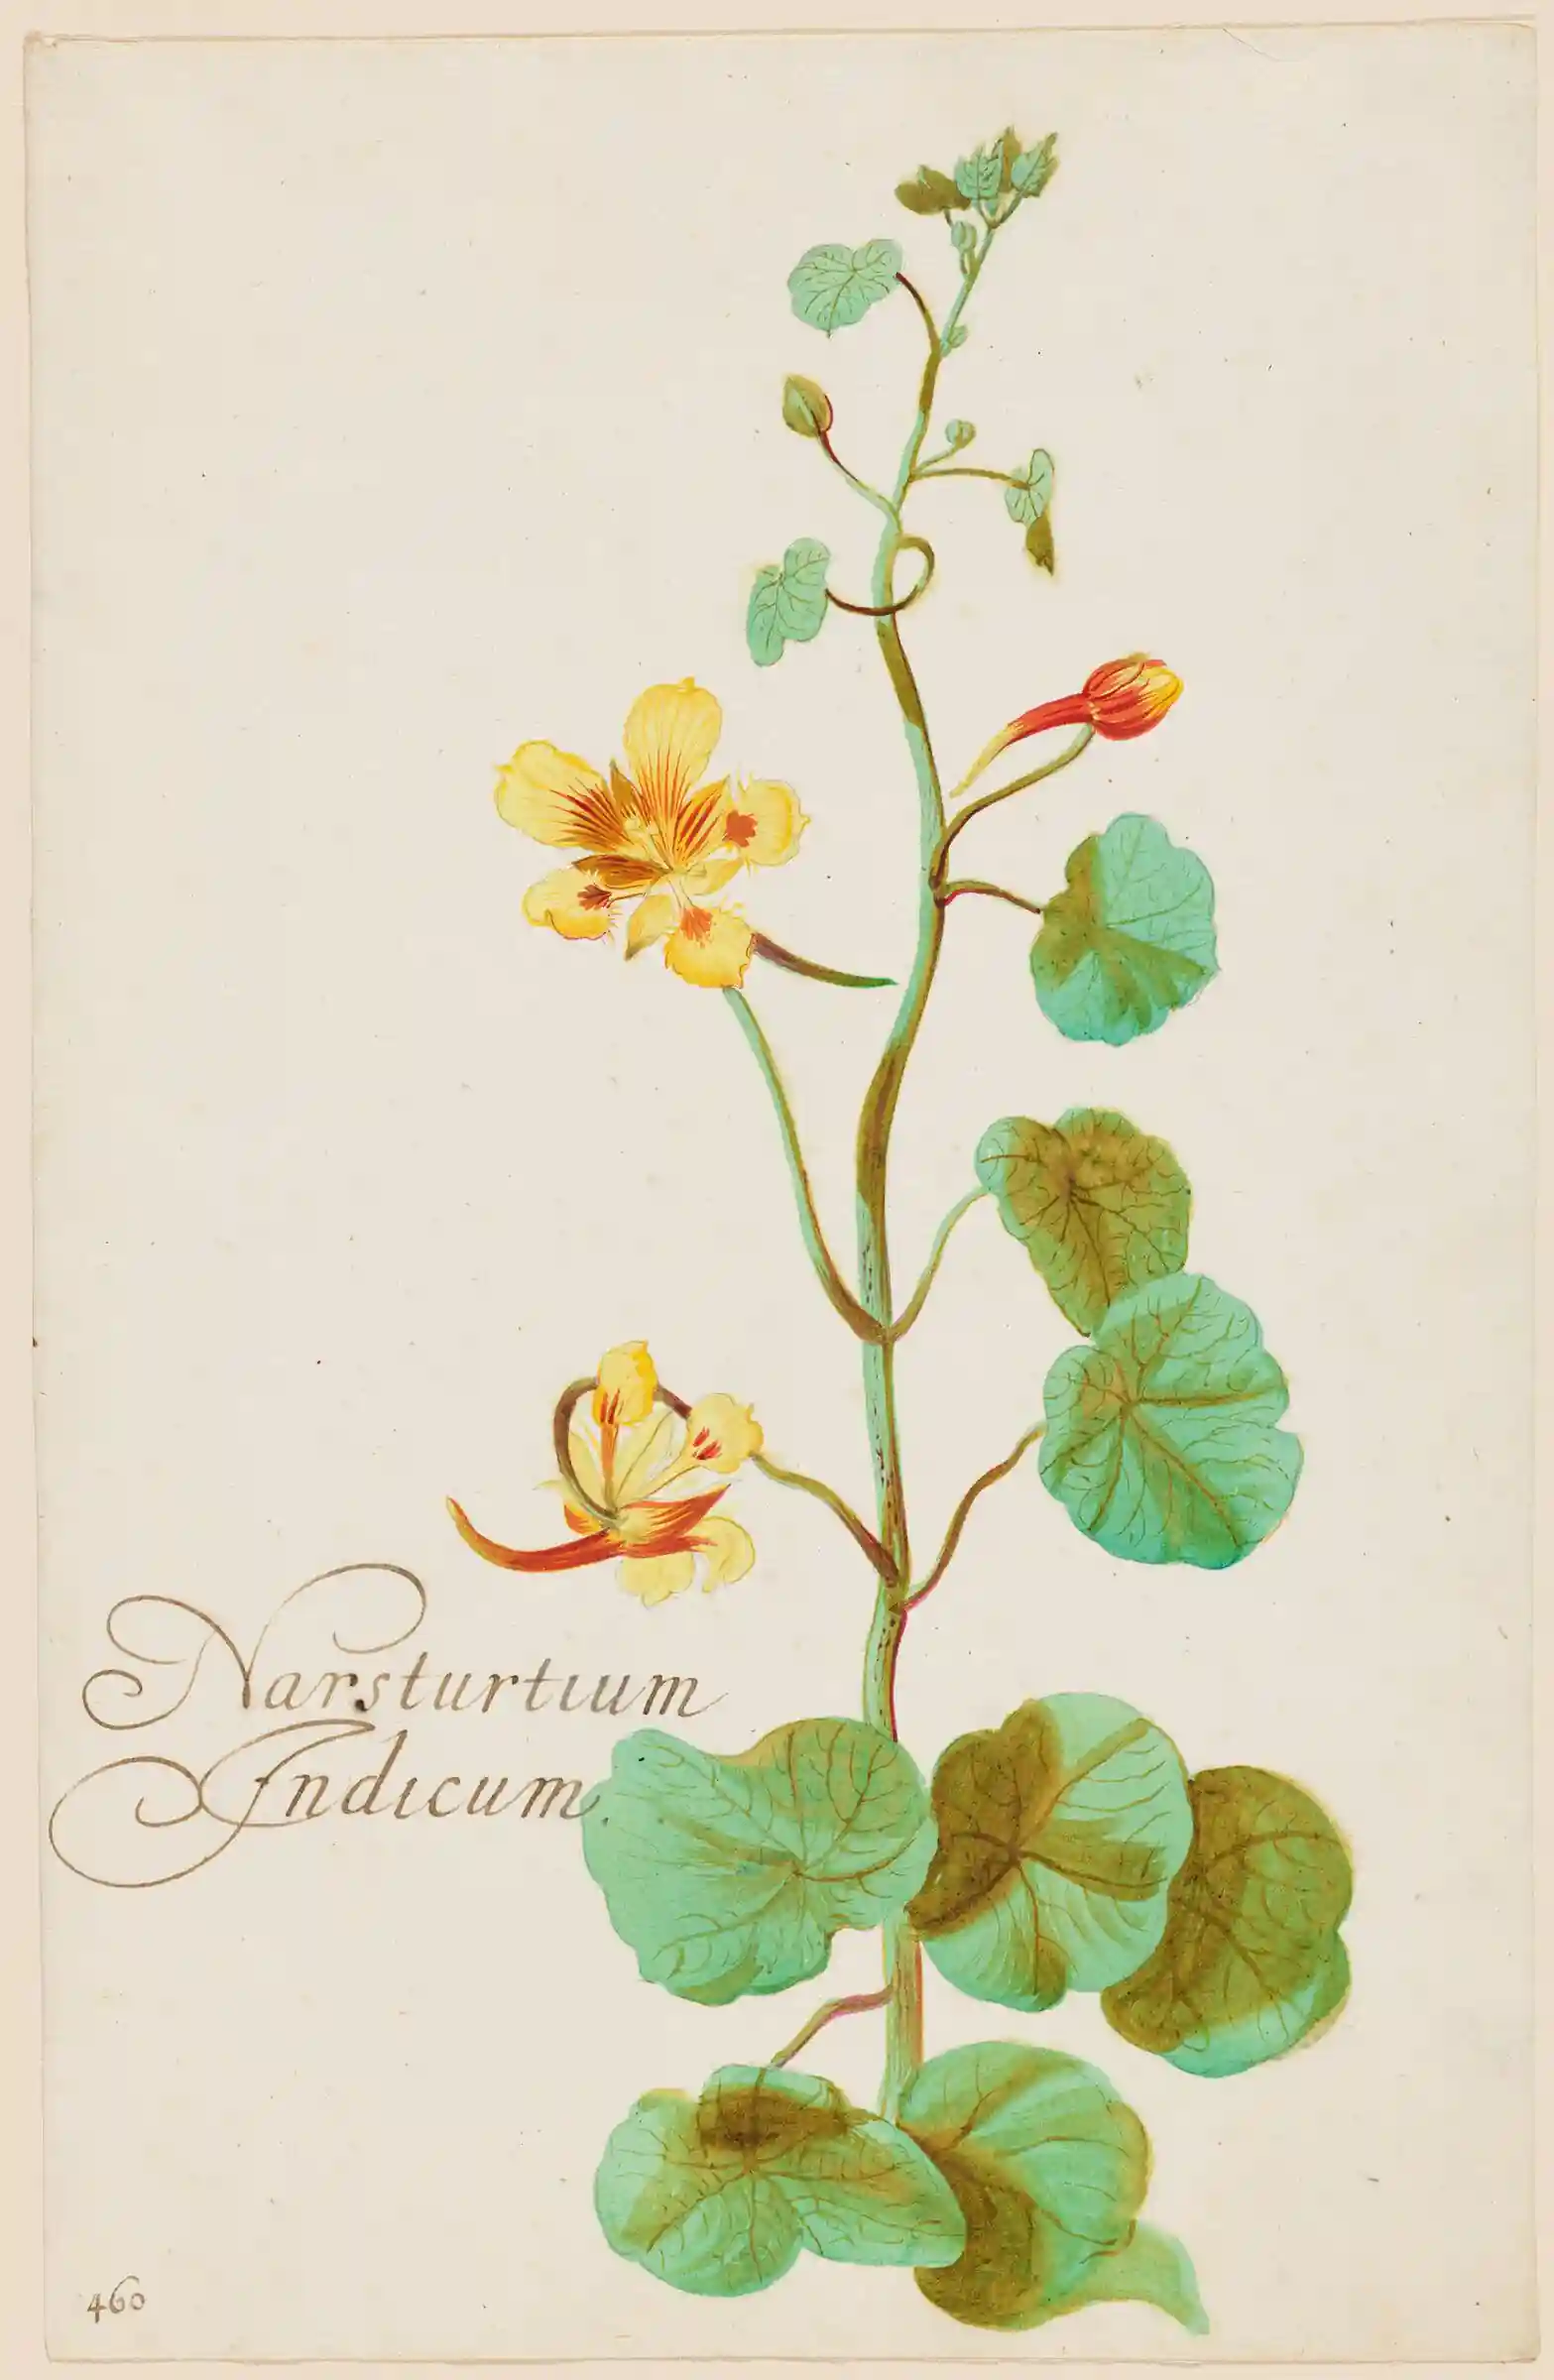 Narsturtium
Indicum.
460